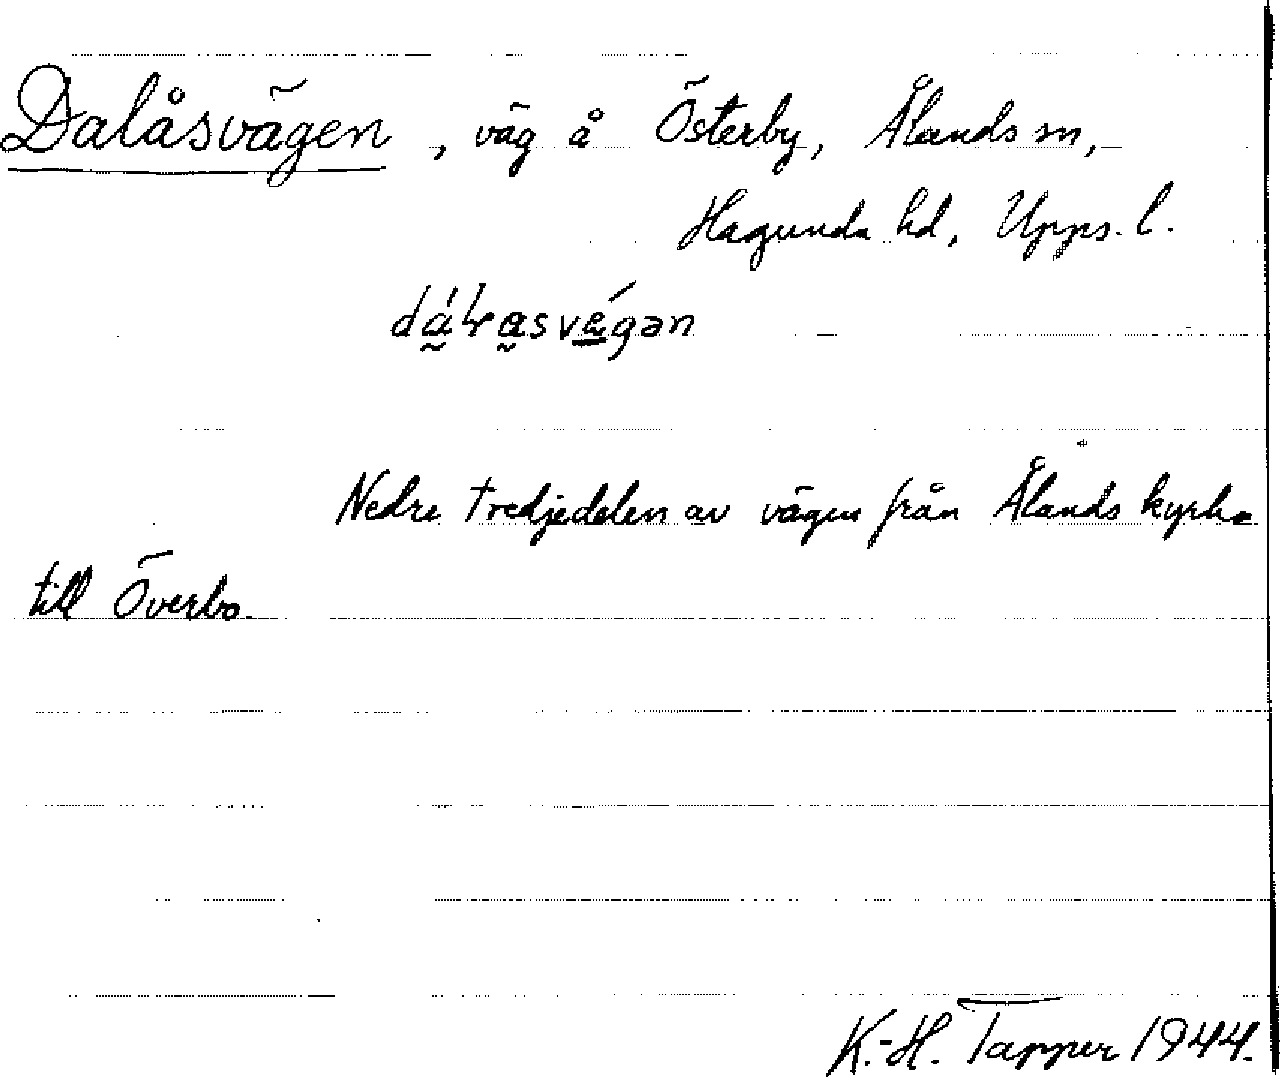 Dalåsvägen, väg å Österby, Ålands sn,
Hagunda hd, Upps. l.
Nedre tredjedelen av vägen från Ålands kyrka
till Överbo.
K.-H. Tapper 1944.